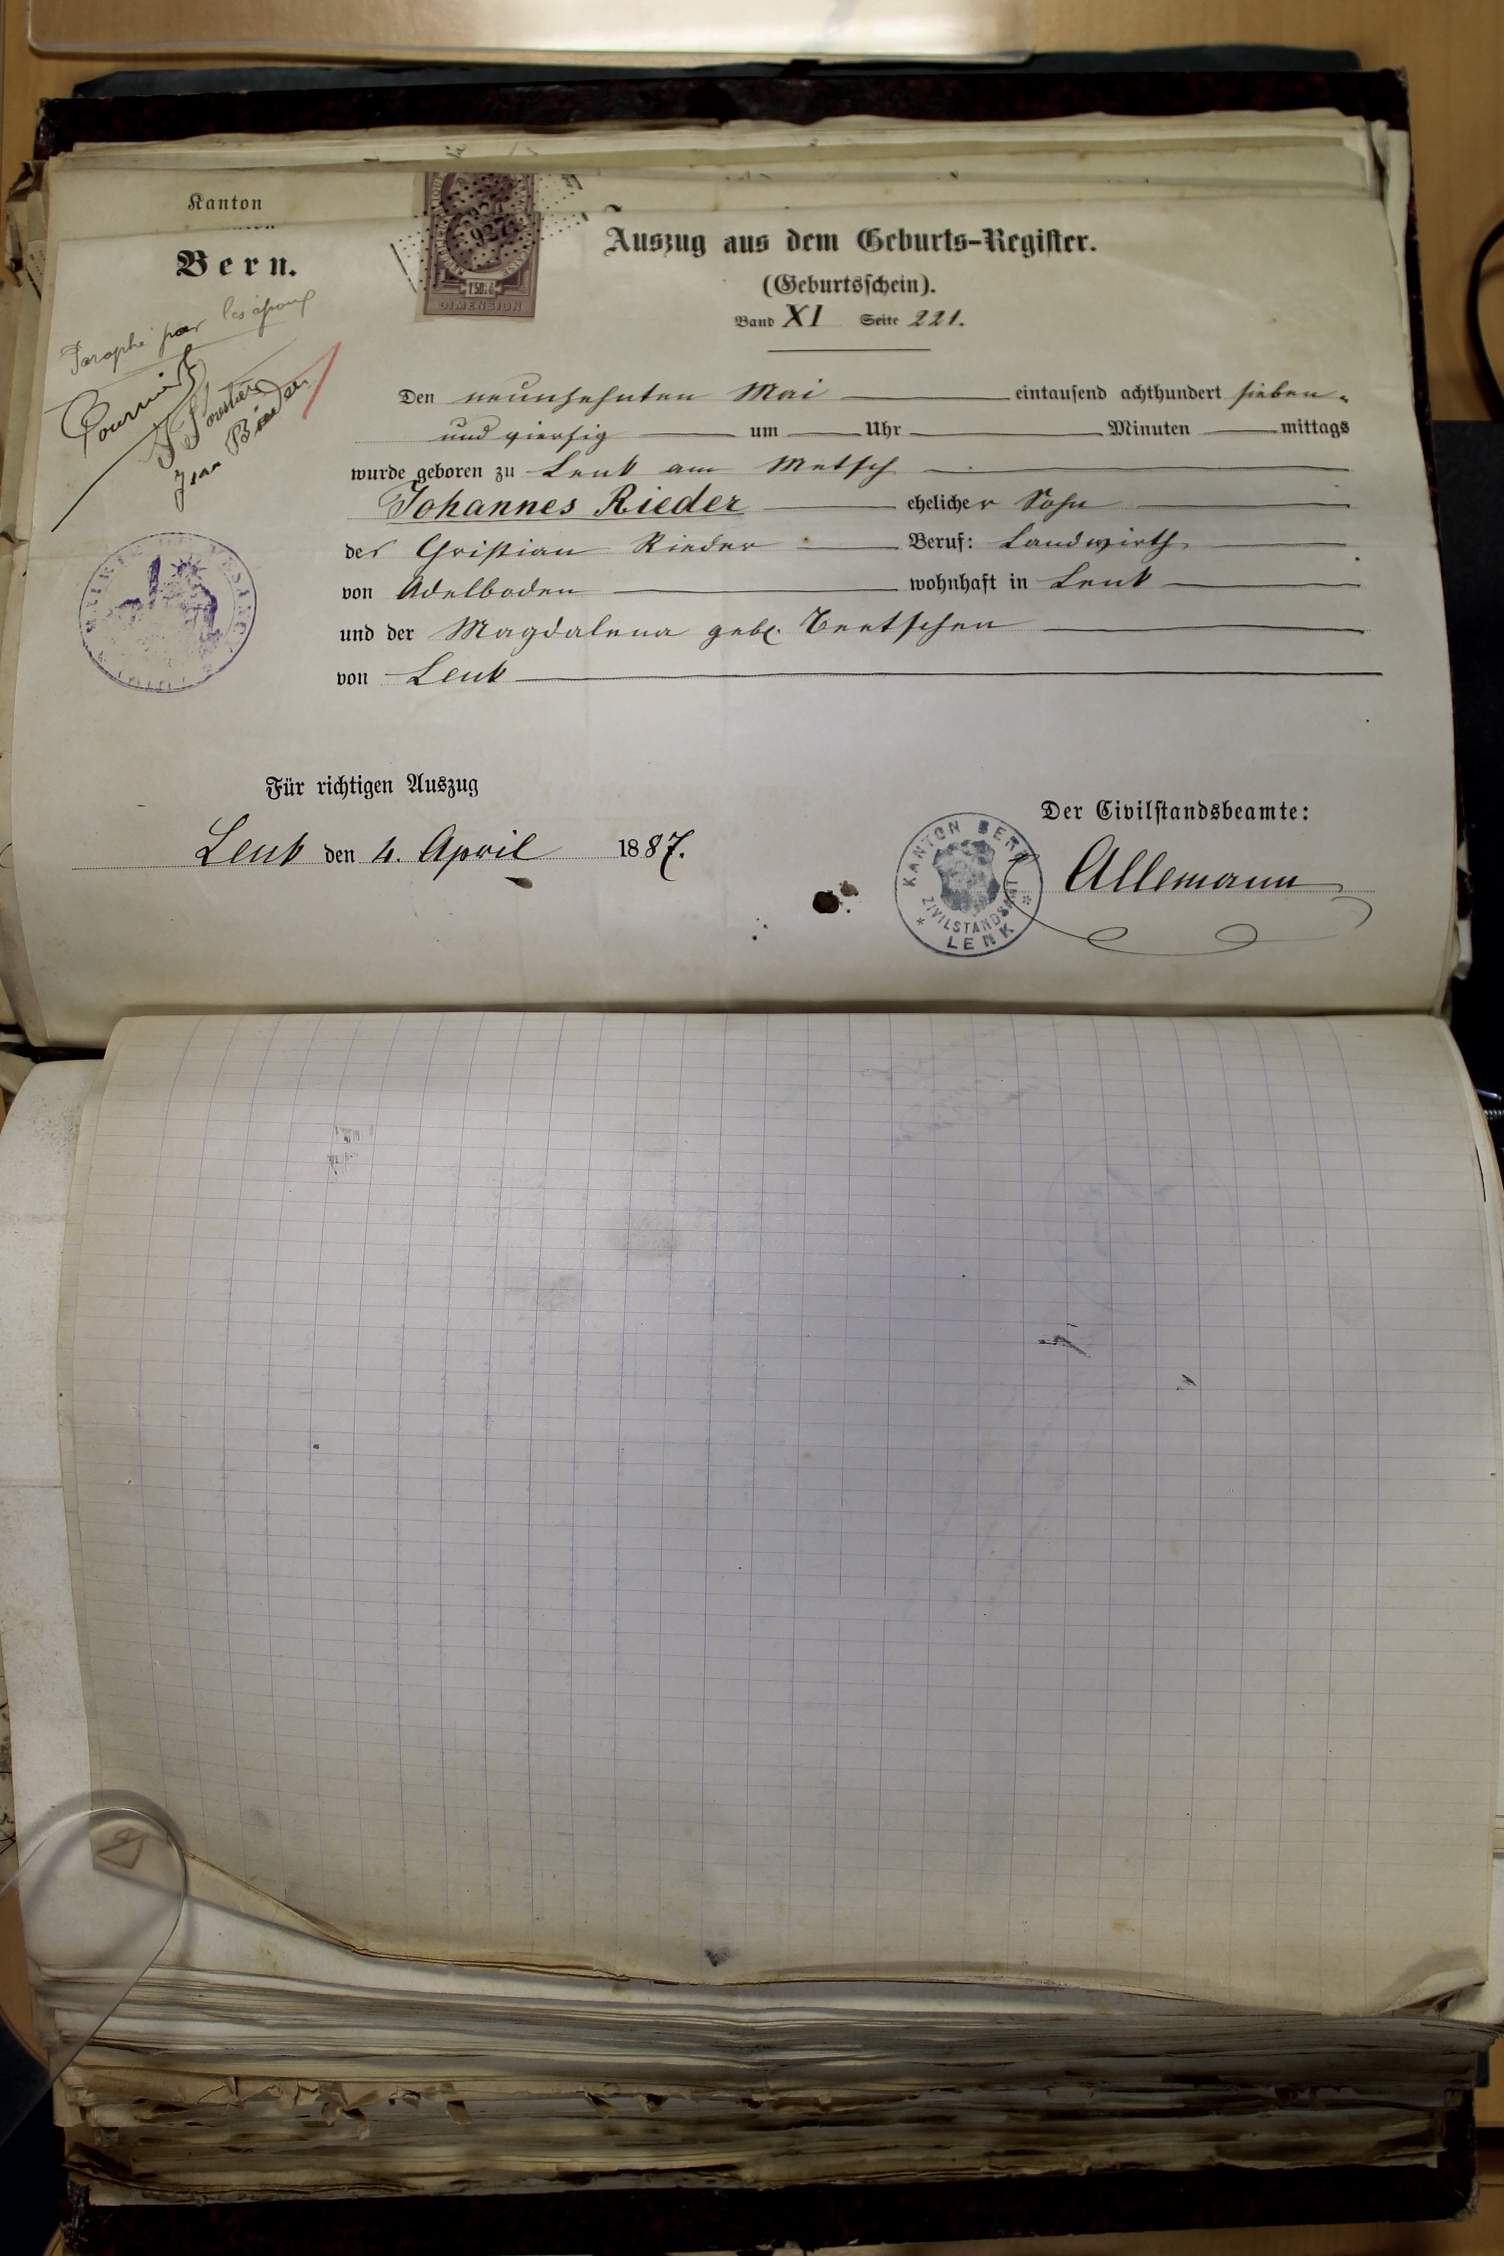 Kanton
Bern.
927
150.c
DIMENSION
Auszug aus dem Geburts-Register.
(Geburtsschein).
Band XI Seite 221.
Paraphé par les époux
Jean Rieder
Den neunzehnten Mai eintausend achthundert sieben-
und vierzig um Uhr Minuten mittags
wurde geboren zu Lenk am Metsch
Johannes Rieder ehelicher Sohn
des Christian Rieder Beruf: Landwirth
von Adelboden wohnhaft in Lenk
und der Magdalena geb. Beetschen
von Lenk
Für richtigen Auszug
Lenk den 4. April 1887.
Der Civilstandsbeamte:
Allemann
KANTON BERN
ZIVILSTANDSAMT
LENK